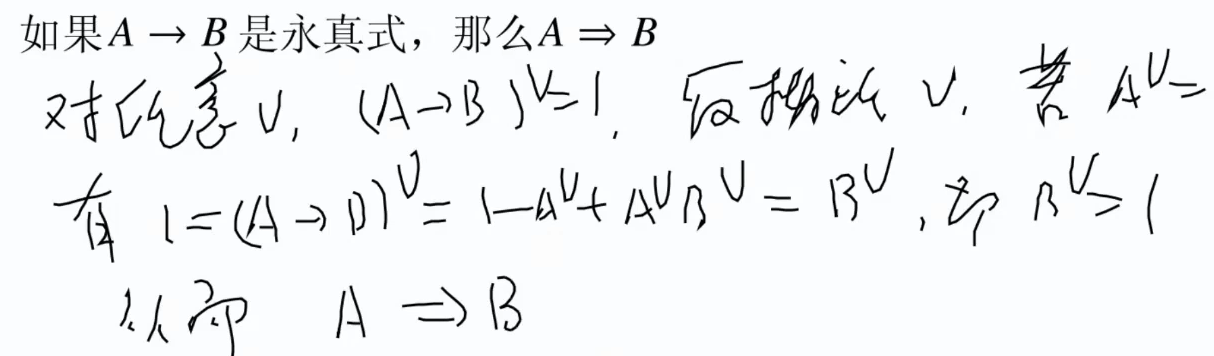 如果A → B是永真式，那么A ⇒ B
对任意v，(A→B)^v=1，反指派 v，若 A^v=
有 1=(A→B)^v=1-A^v+A^vB^v=B^v，即 B^v=1
从而 A ⇒ B